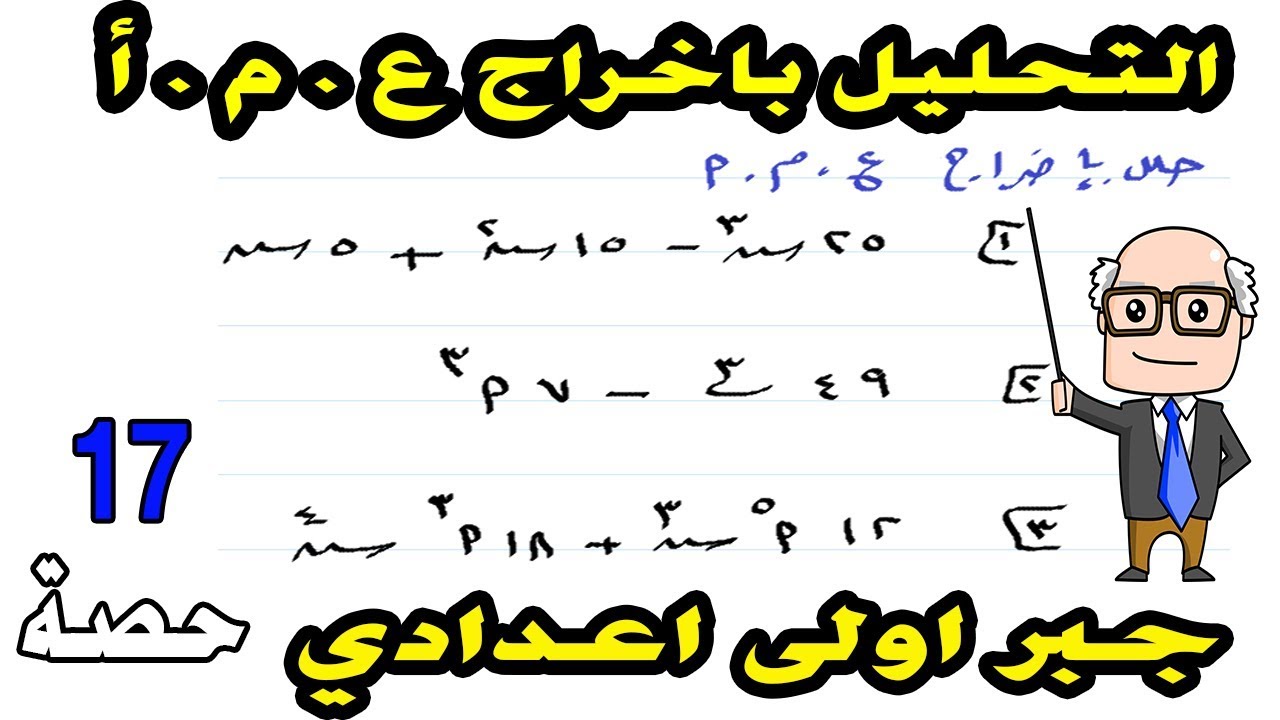 التحليل باخراج ع.م.أ
حلل بإخراج ع.م.أ
[١] ٢٥ س^٣ - ١٥ س^٢ + ٥ س
[٢] ٤٩ - ٧ أ^٣
[٣] ١٢ أ^٥ س^٣ + ١٨ أ^٣ س^٤
17
حصة
جبر اولى اعدادي